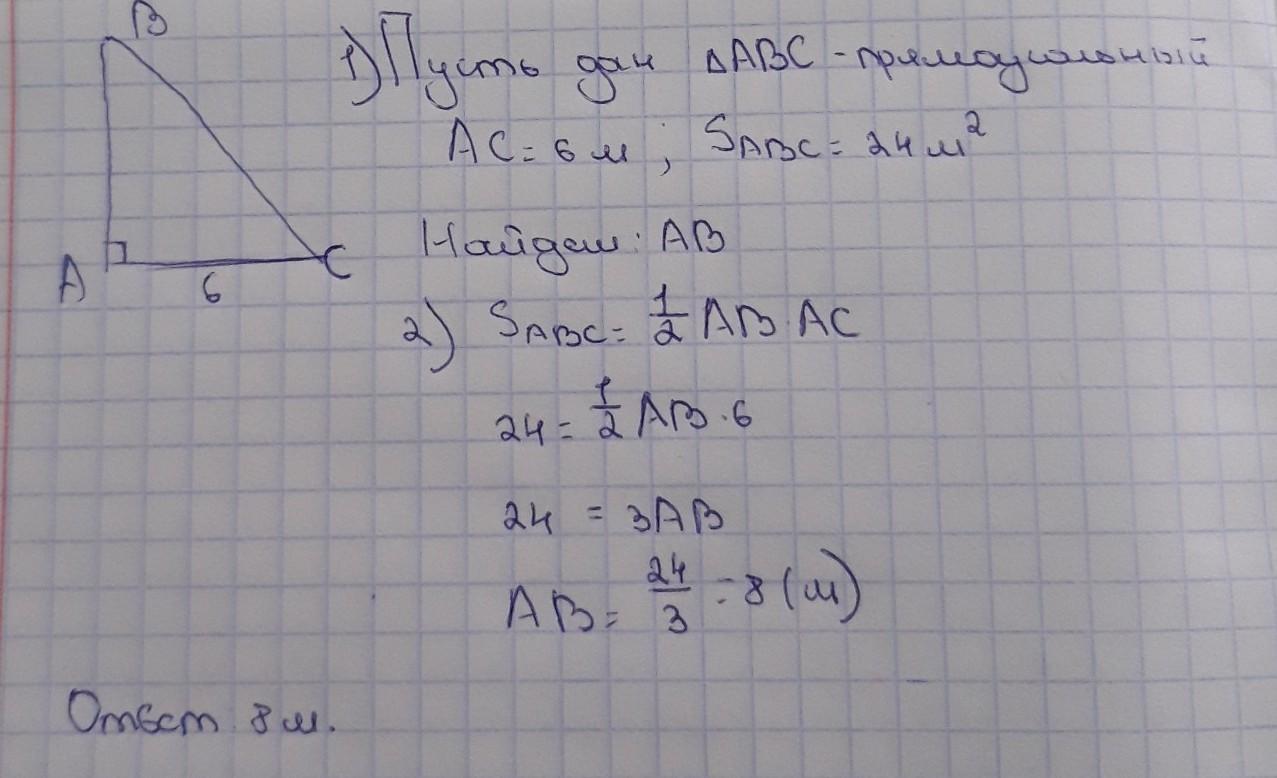 B
1) Пусть дан ΔABC - прямоугольный
AC = 6 м ; SABC = 24 м²
Найдем: AB
A
6
C
2) SABC = 1/2 AB · AC
24 = 1/2 AB · 6
24 = 3AB
AB = 24/3 = 8 (м)
Ответ: 8 м.